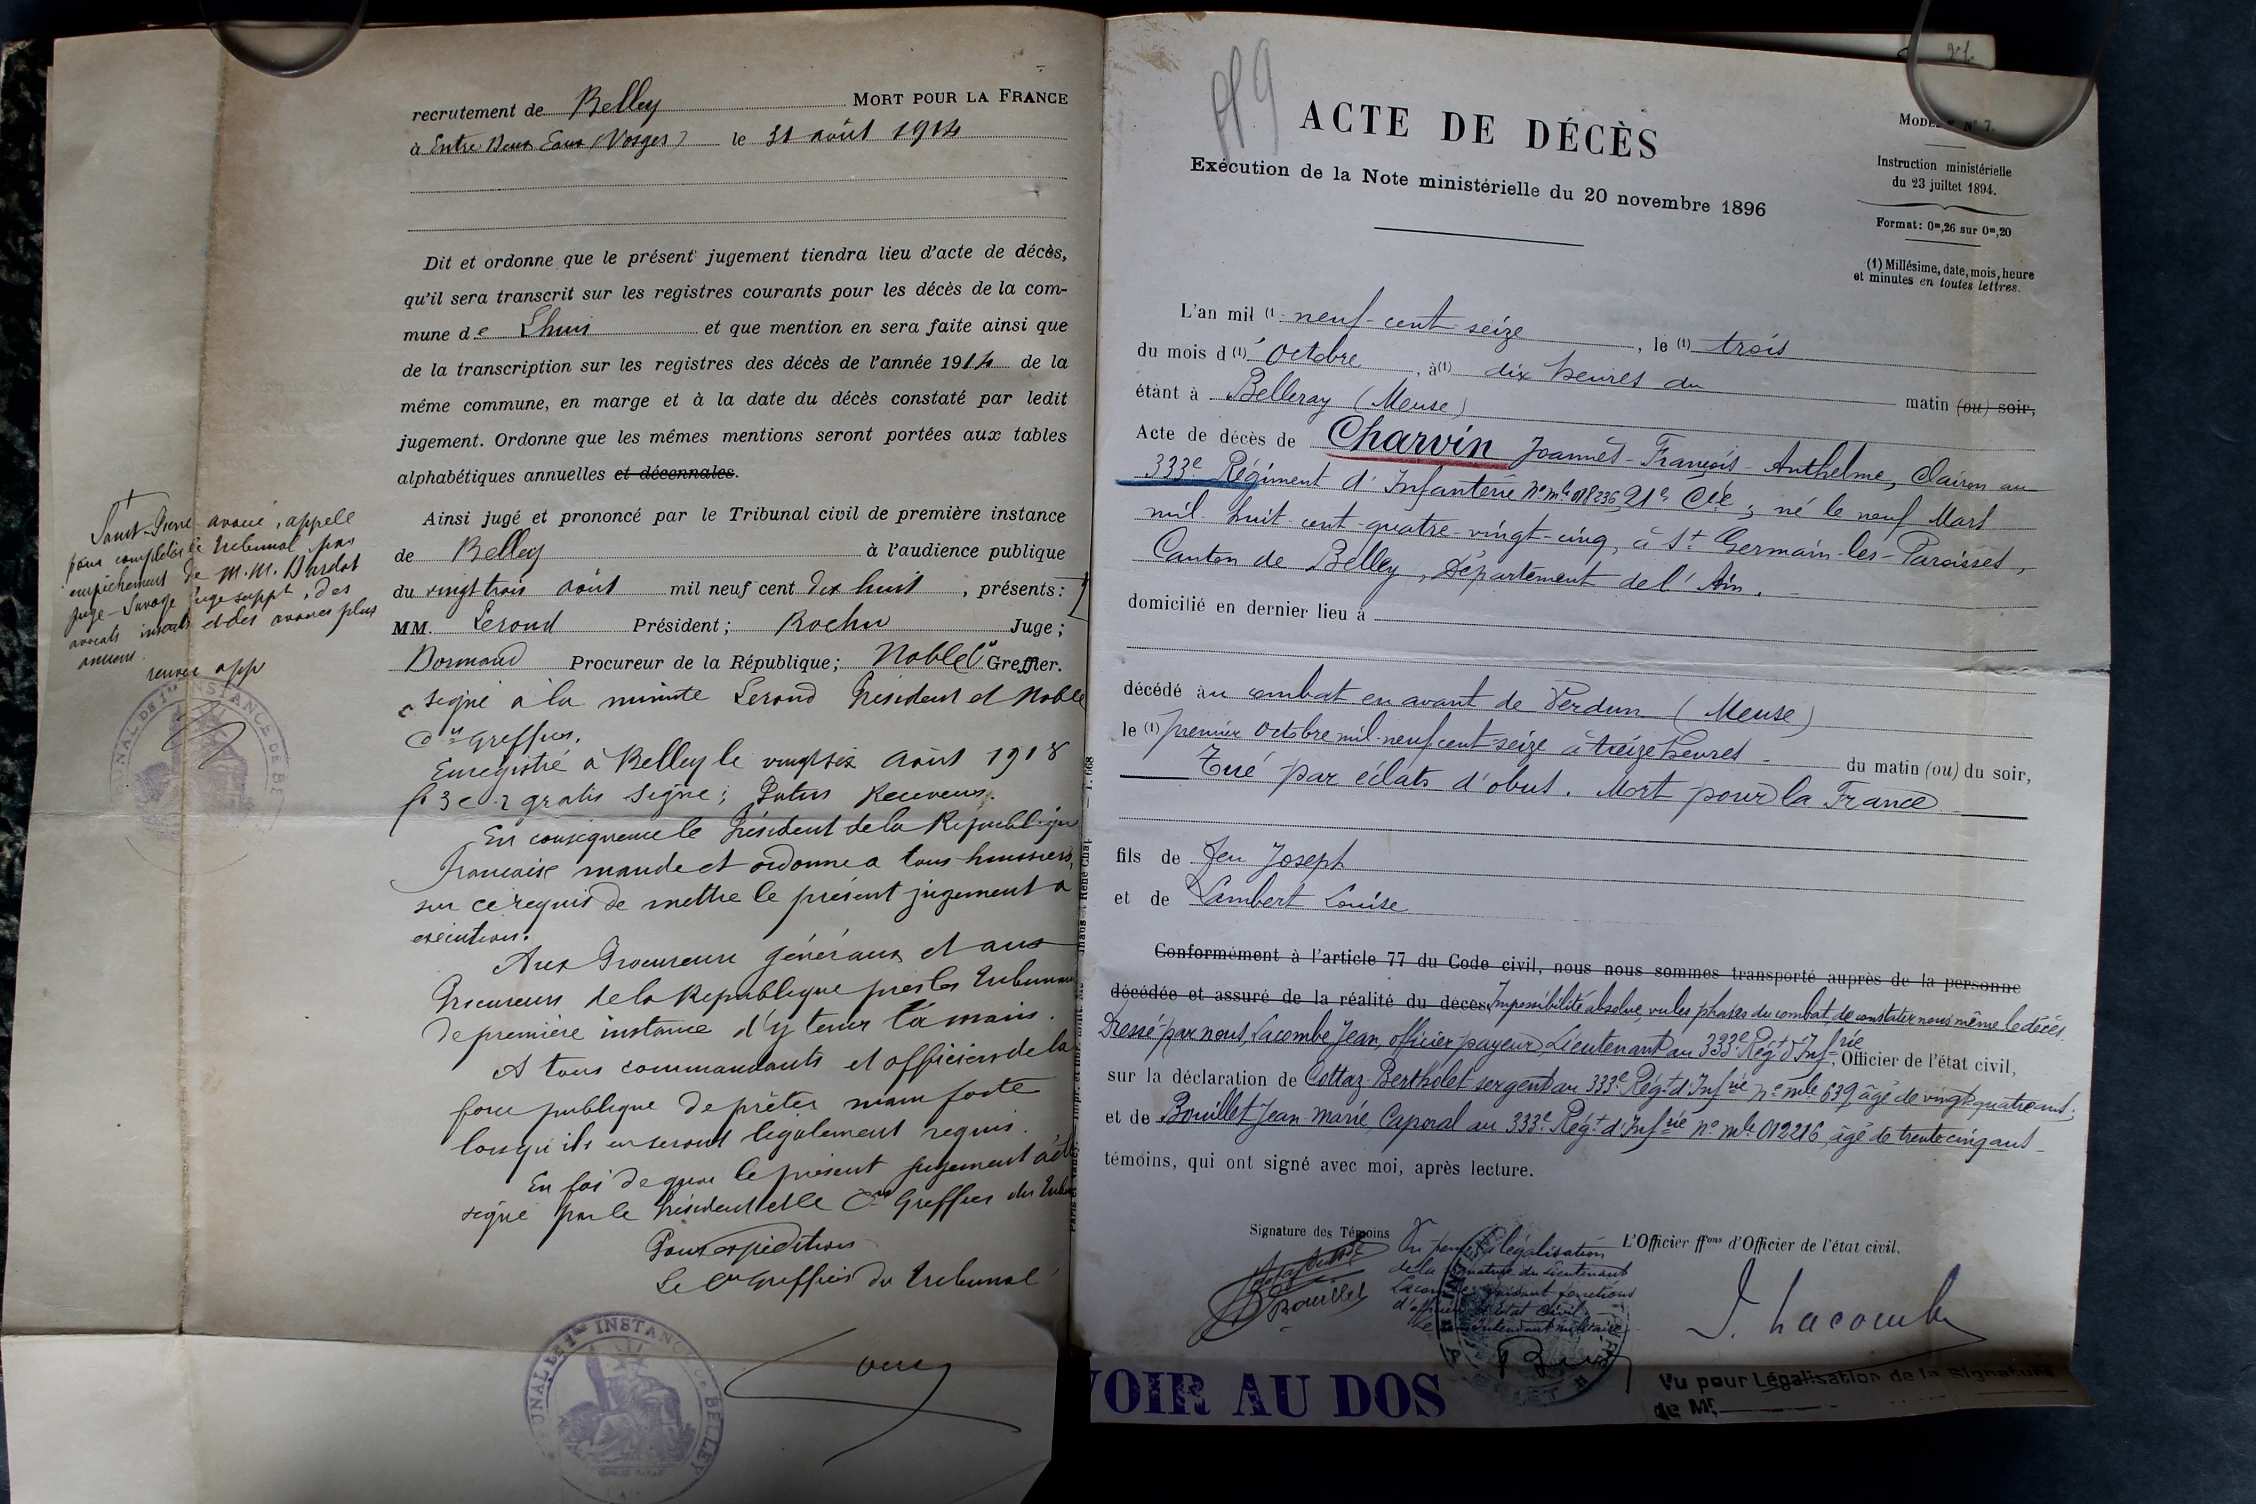 recrutement de Belley MORT POUR LA FRANCE
à Entre Deux Eaux (Vosges) le 31 août 1914
Dit et ordonne que le présent jugement tiendra lieu d'acte de décès,
qu'il sera transcrit sur les registres courants pour les décès de la com-
mune de Lhuis et que mention en sera faite ainsi que
de la transcription sur les registres des décès de l'année 1914 de la
même commune, en marge et à la date du décès constaté par ledit
jugement. Ordonne que les mêmes mentions seront portées aux tables
alphabétiques annuelles et décennales.
Ainsi jugé et prononcé par le Tribunal civil de première instance
de Belley à l'audience publique
du vingt trois août mil neuf cent dix huit, présents:
MM. Lerond Président; Rochu Juge;
Dormand Procureur de la République; Noble Greffier.
signé à la minute Lerond Président et Noble
Greffier.
Enregistré à Belley le vingt six août 1918
gratis signé; Receveur.
En conséquence le Président de la République
Française mande et ordonne à tous huissiers,
sur ce requis de mettre le présent jugement à
exécution.
Aux Procureurs généraux et aux
Procureurs de la République près les Tribunaux
de première instance d'y tenir la main.
A tous commandants et officiers de la
force publique de prêter main forte
lorsqu'ils en seront légalement requis.
En foi de quoi le présent jugement a été
signé par le Président et le Greffier du
Pour expédition
Le Greffier du Tribunal
avoué, appelé
pour compléter le tribunal par
empêchement de M.M. Dardot
juge - Savage juge suppt, des
avocats inscrits et des avoués plus
anciens.
TRIBUNAL DE 1re INSTANCE DE BELLEY
ACTE DE DÉCÈS
Exécution de la Note ministérielle du 20 novembre 1896
MODÈLE N° 7.
Instruction ministérielle
du 23 juillet 1894.
Format: 0m,26 sur 0m,20
(1) Millésime, date, mois, heure
et minutes en toutes lettres.
L'an mil (1) neuf-cent-seize, le (1) trois
du mois d (1) 'Octobre, à (1) dix heures du matin (ou) soir,
étant à Belleray (Meuse)
Acte de décès de Charvin Joannès-François-Anthelme, Clairon au
333e Régiment d'Infanterie N° mle 018236, 21e Cie; né le neuf Mars
mil-huit-cent-quatre-vingt-cinq, à St Germain-les-Paroisses,
Canton de Belley, Département de l'Ain.
domicilié en dernier lieu à
décédé au combat en avant de Verdun (Meuse)
le (1) premier octobre mil-neuf-cent-seize à treize heures du matin (ou) du soir,
Tué par éclats d'obus. Mort pour la France
fils de feu Joseph
et de Lambert Louise
Conformément à l'article 77 du Code civil, nous nous sommes transporté auprès de la personne
décédée et assuré de la réalité du décès. Impossibilité absolue, vu les phases du combat, de constater nous même le décès.
Dressé par nous, Lacombe Jean, officier payeur, Lieutenant au 333e Régt d'Infrie, Officier de l'état civil,
sur la déclaration de Cottaz-Bertholet sergent au 333e Régt d'Infrie N° mle 639, âgé de vingt-quatre ans;
et de Bouillet Jean Marie Caporal au 333e Régt d'Infrie N° mle 012216, âgé de trente cinq ans
témoins, qui ont signé avec moi, après lecture.
Signature des Témoins
Bouillet
Vu pour légalisation
de la signature du Lieutenant
Lacombe, faisant fonctions
d'officier d'Etat civil.
L'Officier ffons d'Officier de l'état civil.
J. Lacombe
VOIR AU DOS
Vu pour Légalisation de la Signature
de Mr.